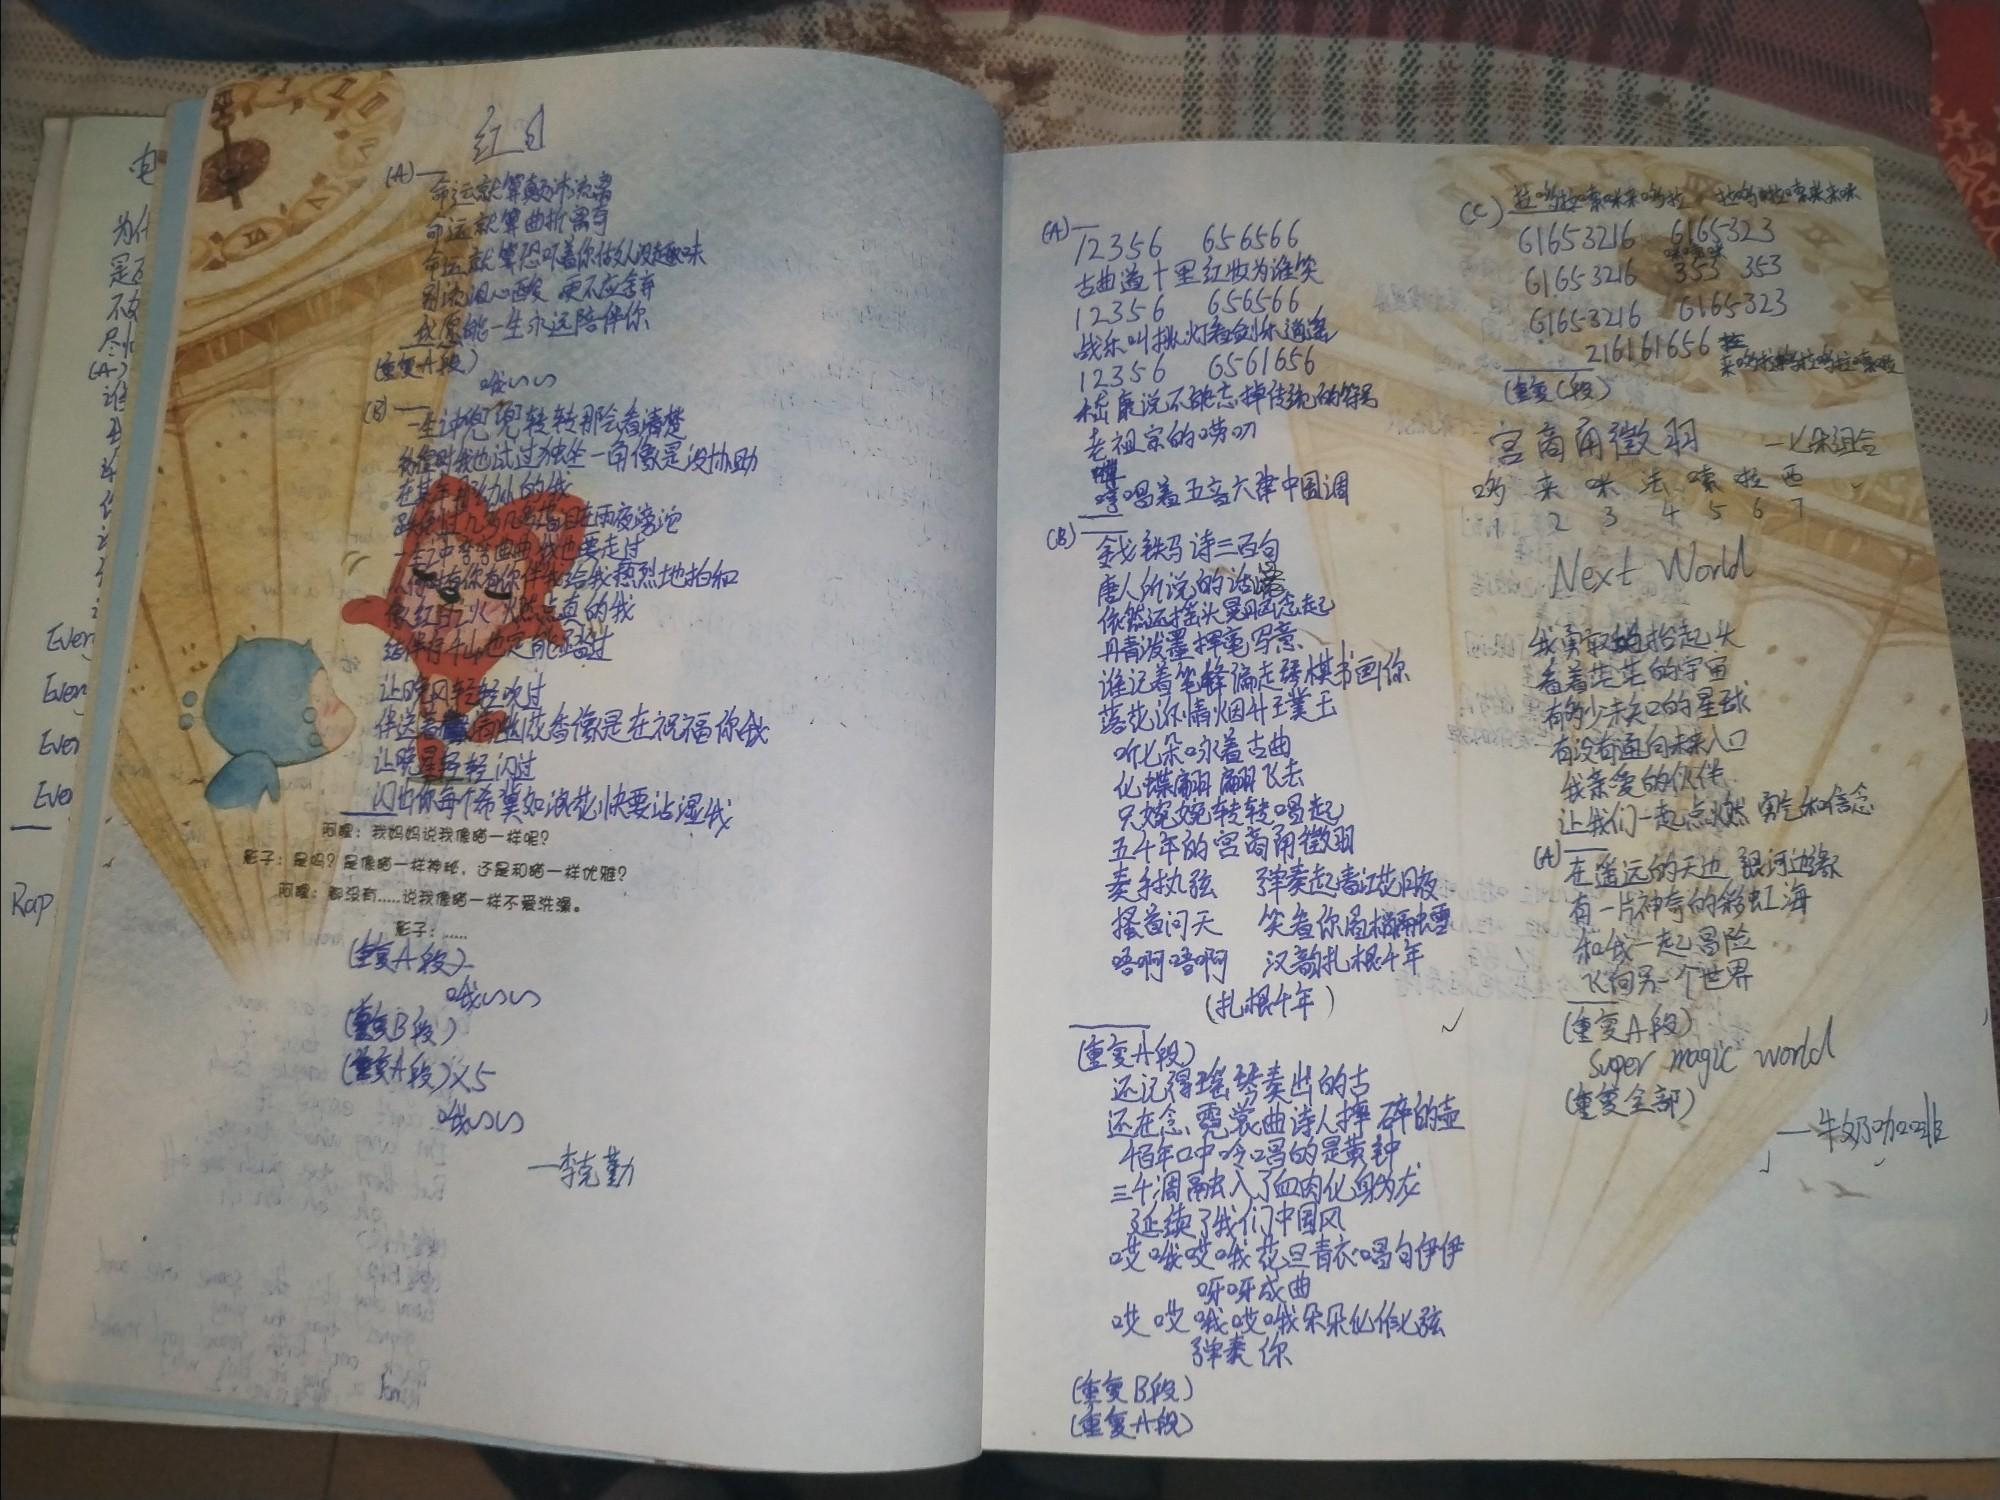 红日
(A)
命运就算颠沛流离
命运就算曲折离奇
命运就算恐吓着你做人没趣味
别流泪心酸 更不应舍弃
我愿能一生永远陪伴你
(重复A段)
哦
(B)
一生之中兜兜转转那会看清楚
彷徨时我也试过独坐一角像是没协助
在某年 那幼小的我
跌倒过几多几多落泪在雨夜滂沱
一生之中弯弯曲曲我也要走过
从何时有你有你伴我给我热烈地拍和
像红日之火 燃点真的我
结伴行千山也定能踏过
让晚风轻轻吹过
伴送着清幽花香像是在祝福你我
让晚星轻轻闪过
闪出你每个希冀如浪花快要沾湿我
阿狸：我妈妈说我像喵一样呢？
影子：是吗？是像喵一样神秘，还是和喵一样优雅？
阿狸：都没有……说我像喵一样不爱洗澡。
影子：……
(重复A段)
哦
(重复B段)
(重复A段)×5
哦
—李克勤
为什
是
不
尽
(A)
谁
Ever
Ever
Ever
Eve
Rap
(A)
12356 656566
古曲道十里红妆为谁笑
12356 656566
战乐叫挑灯看剑乐逍遥
12356 6561656
嵇康说不能忘掉传统的符号
老祖宗的唠叨
哼唱着五音六律中国调
(B)
金戈铁马诗三百句
唐人所说的话
依然还摇头晃脑念起
丹青泼墨挥毫写意
谁记着笔锋偏走琴棋书画你
落花添情烟斗玉璞玉
听七朵咏着古曲
化蝶翩翩飞去
只婉婉转转唱起
五千年的宫商角徵羽
奏手执弦 弹奏起春江花月夜
搔首问天 笑看你眉梢融雪
唔啊唔啊 汉韵扎根千年
(扎根千年)
(重复A段)
还记得瑶琴奏出的古
还在念霓裳曲诗人摔碎的壶
千百年口中吟唱的是黄钟
三千调融入了血肉化身为龙
延续了我们中国风
哎哦哎哦花旦青衣唱句伊伊
呀呀成曲
哎哎哦哎哦朵朵化作七弦
弹奏你
(重复B段)
(重复A段)
(C) 拉哆拉嗦咪来哆拉 拉哆拉嗦咪来咪
61653216 6165323
咪嗦咪
61653216 353 353
61653216 6165323
216161656
(重复C段)
宫商角徵羽 —七朵组合
哆 来 咪 法 嗦 拉 西
1 2 3 4 5 6 7
Next World
我勇敢地抬起头
看着茫茫的宇宙
有多少未知的星球
有没有通向未来入口
我亲爱的伙伴
让我们一起点燃 勇气和信念
(A)
在遥远的天边 银河边缘
有一片神奇的彩虹海
和我一起冒险
飞向另一个世界
(重复A段)
Super magic world
(重复全部)
—牛奶咖啡